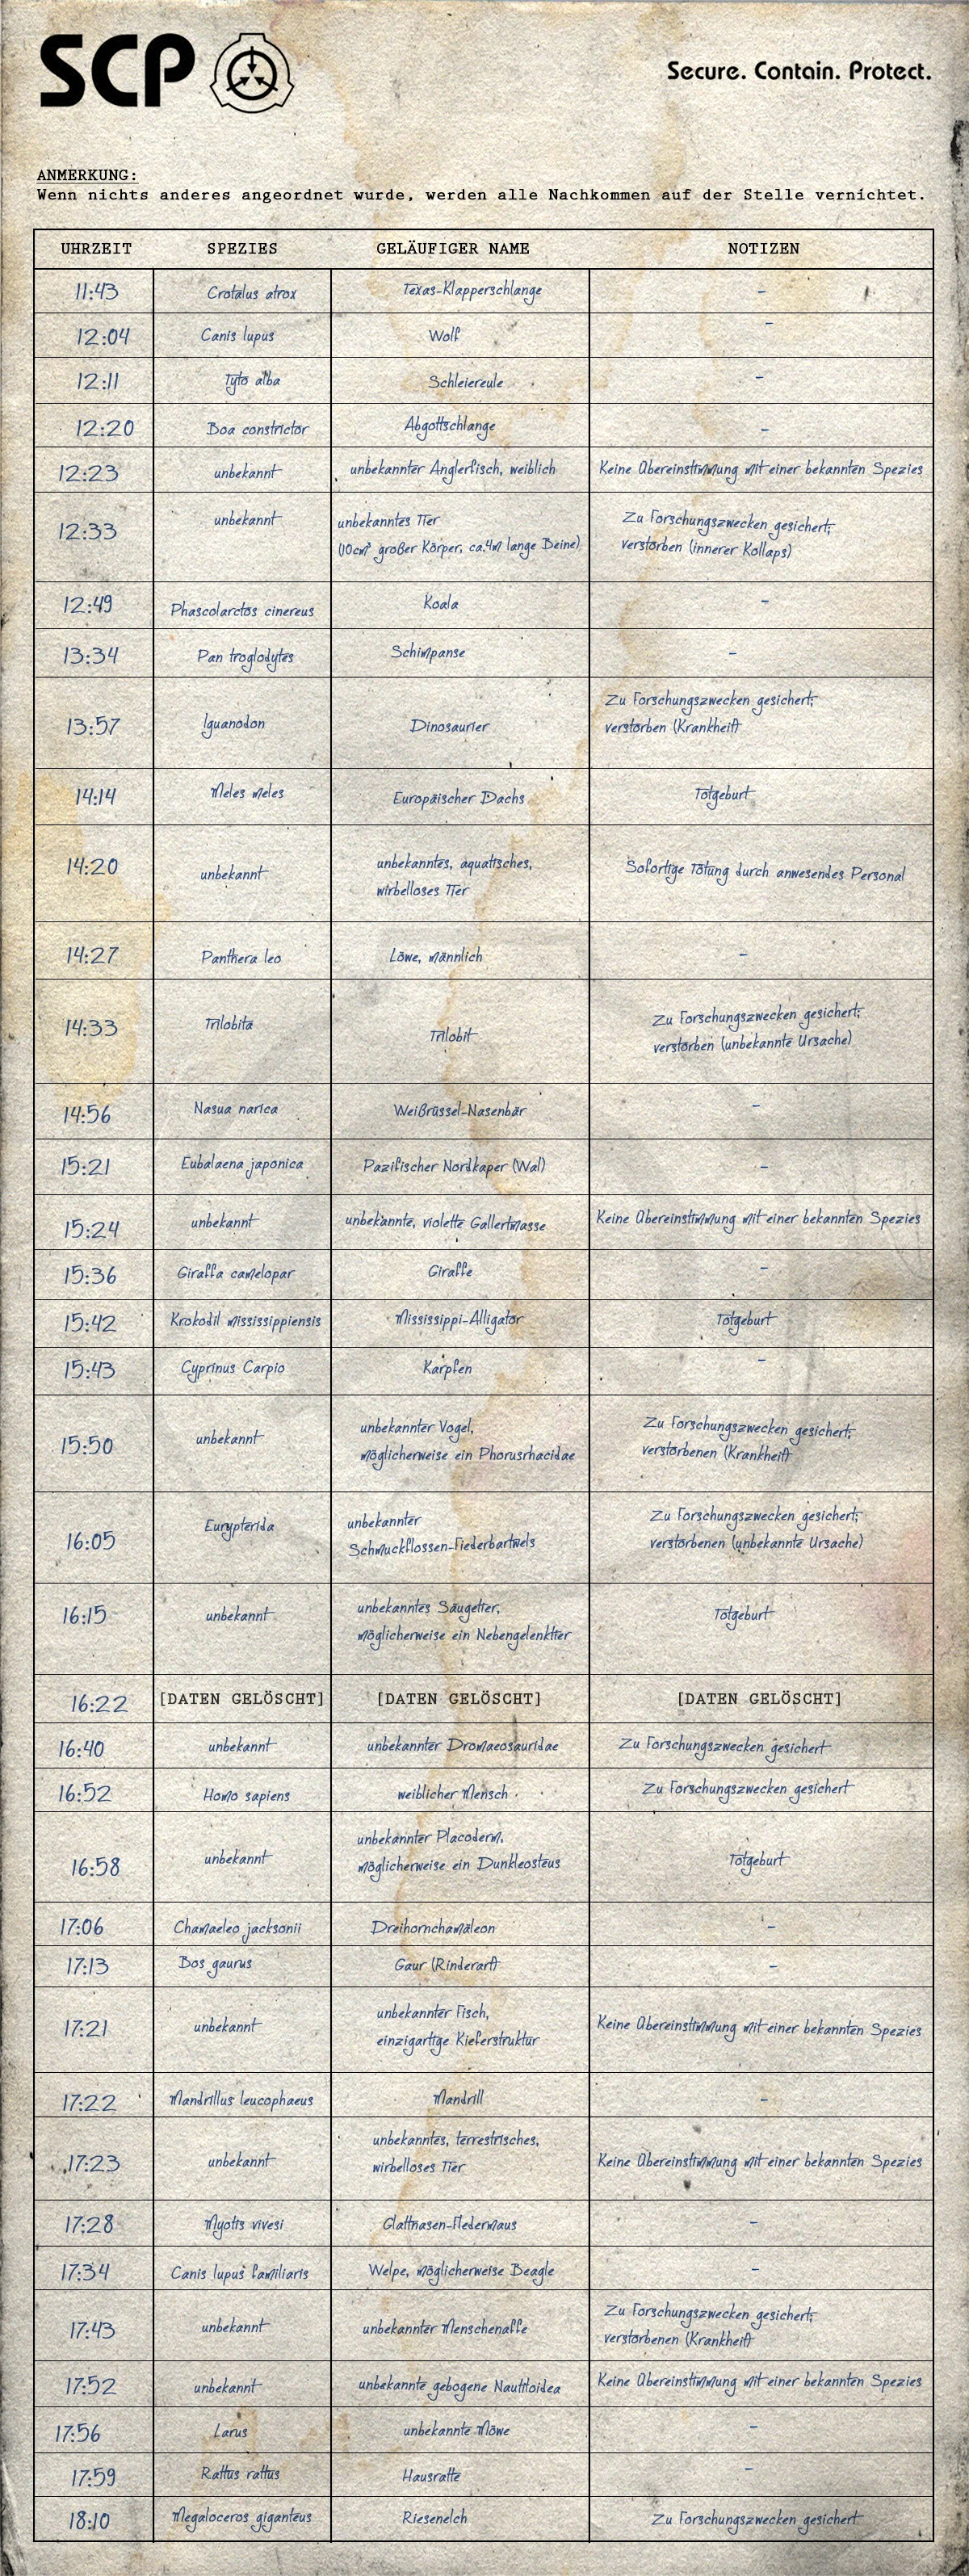 SCP
Secure. Contain. Protect.
ANMERKUNG:
Wenn nichts anderes angeordnet wurde, werden alle Nachkommen auf der Stelle vernichtet.
UHRZEIT SPEZIES GELÄUFIGER NAME NOTIZEN
11:43 Crotalus atrox Texas-Klapperschlange -
12:04 Canis lupus Wolf -
12:11 Tyto alba Schleiereule -
12:20 Boa constrictor Abgottschlange -
12:23 unbekannt unbekannter Anglerfisch, weiblich Keine Übereinstimmung mit einer bekannten Spezies
12:33 unbekannt unbekanntes Tier Zu Forschungszwecken gesichert;
(10cm³ großer Körper, ca.4m lange Beine) verstorben (innerer Kollaps)
12:49 Phascolarctos cinereus Koala -
13:34 Pan troglodytes Schimpanse -
13:57 Iguanodon Dinosaurier Zu Forschungszwecken gesichert;
verstorben (Krankheit)
14:14 Meles meles Europäischer Dachs Totgeburt
14:20 unbekannt unbekanntes, aquatisches, Sofortige Tötung durch anwesendes Personal
wirbelloses Tier
14:27 Panthera leo Löwe, männlich -
14:33 Trilobita Trilobit Zu Forschungszwecken gesichert;
verstorben (unbekannte Ursache)
14:56 Nasua narica Weißrüssel-Nasenbär -
15:21 Eubalaena japonica Pazifischer Nordkaper (Wal) -
15:24 unbekannt unbekannte, violette Gallertmasse Keine Übereinstimmung mit einer bekannten Spezies
15:36 Giraffa camelopar Giraffe -
15:42 Krokodil mississippiensis Mississippi-Alligator Totgeburt
15:43 Cyprinus Carpio Karpfen -
15:50 unbekannt unbekannter Vogel, Zu Forschungszwecken gesichert;
möglicherweise ein Phorusrhacidae verstorbenen (Krankheit)
16:05 Eurypterida unbekannter Zu Forschungszwecken gesichert;
Schmuckflossen-Fiederbartwels verstorbenen (unbekannte Ursache)
16:15 unbekannt unbekanntes Säugetier, Totgeburt
möglicherweise ein Nebengelenktier
16:22 [DATEN GELÖSCHT] [DATEN GELÖSCHT] [DATEN GELÖSCHT]
16:40 unbekannt unbekannter Dromaeosauridae Zu Forschungszwecken gesichert
16:52 Homo sapiens weiblicher Mensch Zu Forschungszwecken gesichert
16:58 unbekannt unbekannter Placoderm, Totgeburt
möglicherweise ein Dunkleosteus
17:06 Chamaeleo jacksonii Dreihornchamäleon -
17:13 Bos gaurus Gaur (Rinderart) -
17:21 unbekannt unbekannter Fisch, Keine Übereinstimmung mit einer bekannten Spezies
einzigartige Kieferstruktur
17:22 Mandrillus leucophaeus Mandrill -
17:23 unbekannt unbekanntes, terrestrisches, Keine Übereinstimmung mit einer bekannten Spezies
wirbelloses Tier
17:28 Myotis vivesi Glattnasen-Fledermaus -
17:34 Canis lupus familiaris Welpe, möglicherweise Beagle -
17:43 unbekannt unbekannter Menschenaffe Zu Forschungszwecken gesichert;
verstorbenen (Krankheit)
17:52 unbekannt unbekannte gebogene Nautiloidea Keine Übereinstimmung mit einer bekannten Spezies
17:56 Larus unbekannte Möwe -
17:59 Rattus rattus Hausratte -
18:10 Megaloceros giganteus Riesenelch Zu Forschungszwecken gesichert